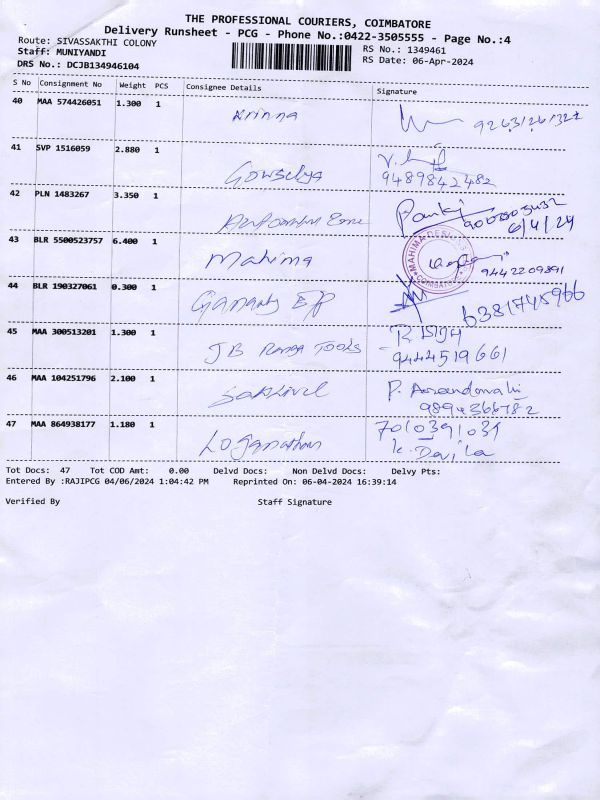 THE PROFESSIONAL COURIERS, COIMBATORE
Delivery Runsheet - PCG - Phone No.:0422-3505555 - Page No.:4
Route: SIVASSAKTHI COLONY
RS No.: 1349461
Staff: MUNIYANDI
RS Date: 06-Apr-2024
DRS No.: DCJB134946104
S No Consignment No Weight PCS Consignee Details Signature
40 MAA 574426051 1.300 1
41 SVP 1516059 2.880 1 Gowselya
9489842482
42 PLN 1483267 3.350 1 Zone Pankj
6/4/24
43 BLR 5500523757 6.400 1 Mahima MAHIMA COIMBATORE
9442209891
44 BLR 190327061 0.300 1 6381745966
45 MAA 300513201 1.300 1 JB Ranga Tools
9444519661
46 MAA 104251796 2.100 1 Sakthivel P.
9894366782
47 MAA 864938177 1.180 1 Loganathan 7010391039
K. Devila
Tot Docs: 47 Tot COD Amt: 0.00 Delvd Docs: Non Delvd Docs: Delvy Pts:
Entered By :RAJIPCG 04/06/2024 1:04:42 PM Reprinted On: 06-04-2024 16:39:14
Verified By Staff Signature